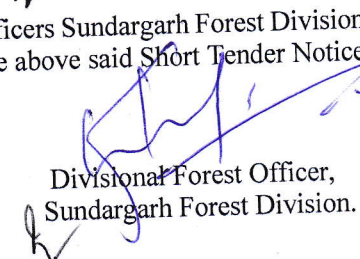 ficers Sundargarh Forest Division
e above said Short Tender Notice
Divisional Forest Officer,
Sundargarh Forest Division.